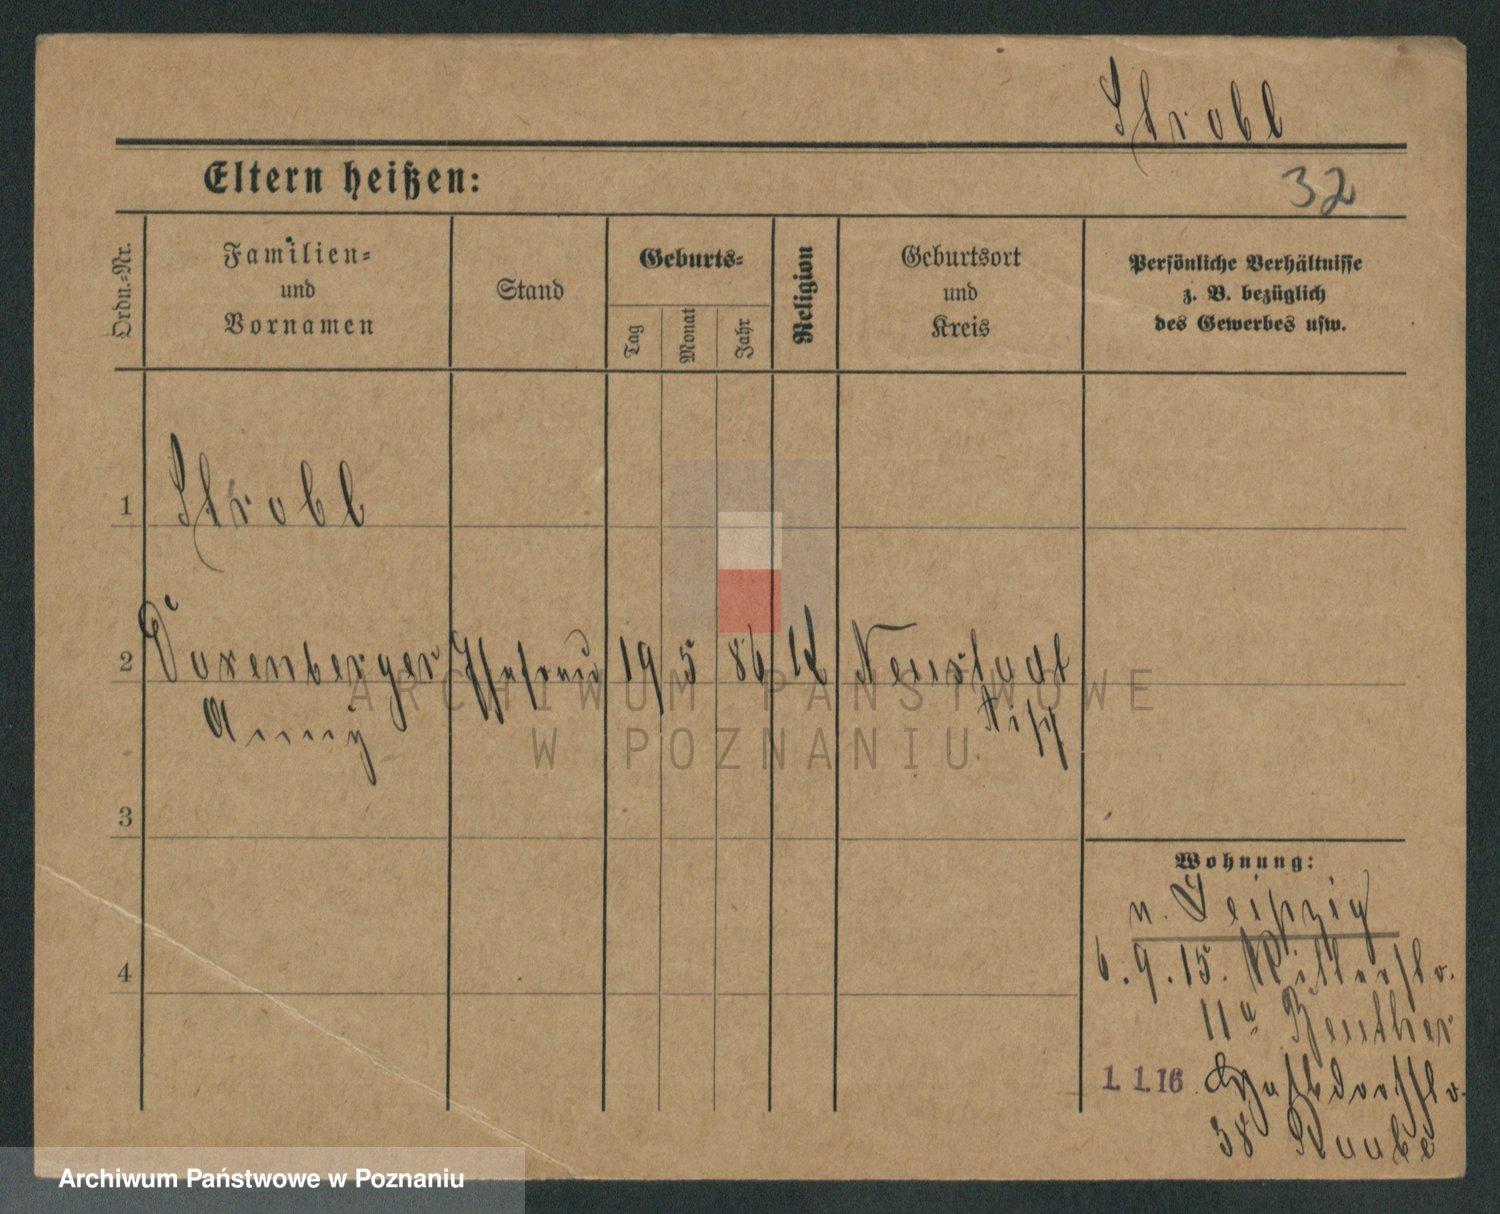 Strobl
Eltern heißen:
32
Ordn.-Nr.
Familien-
und
Vornamen
Stand
Geburts-
Tag
Monat
Jahr
Religion
Geburtsort
und
Kreis
Persönliche Verhältnisse
z. B. bezüglich
des Gewerbes usw.
1
Strobl
2 Dorenberger Ehefrau 19 5 86 Neustadt
Anny
3
4
Wohnung:
n. Leipzig
6.9.15. Ritterstr.
11a Beuther
1. 1. 16
38 Raabe
ARCHIWUM PAŃSTWOWE
W POZNANIU
Archiwum Państwowe w Poznaniu